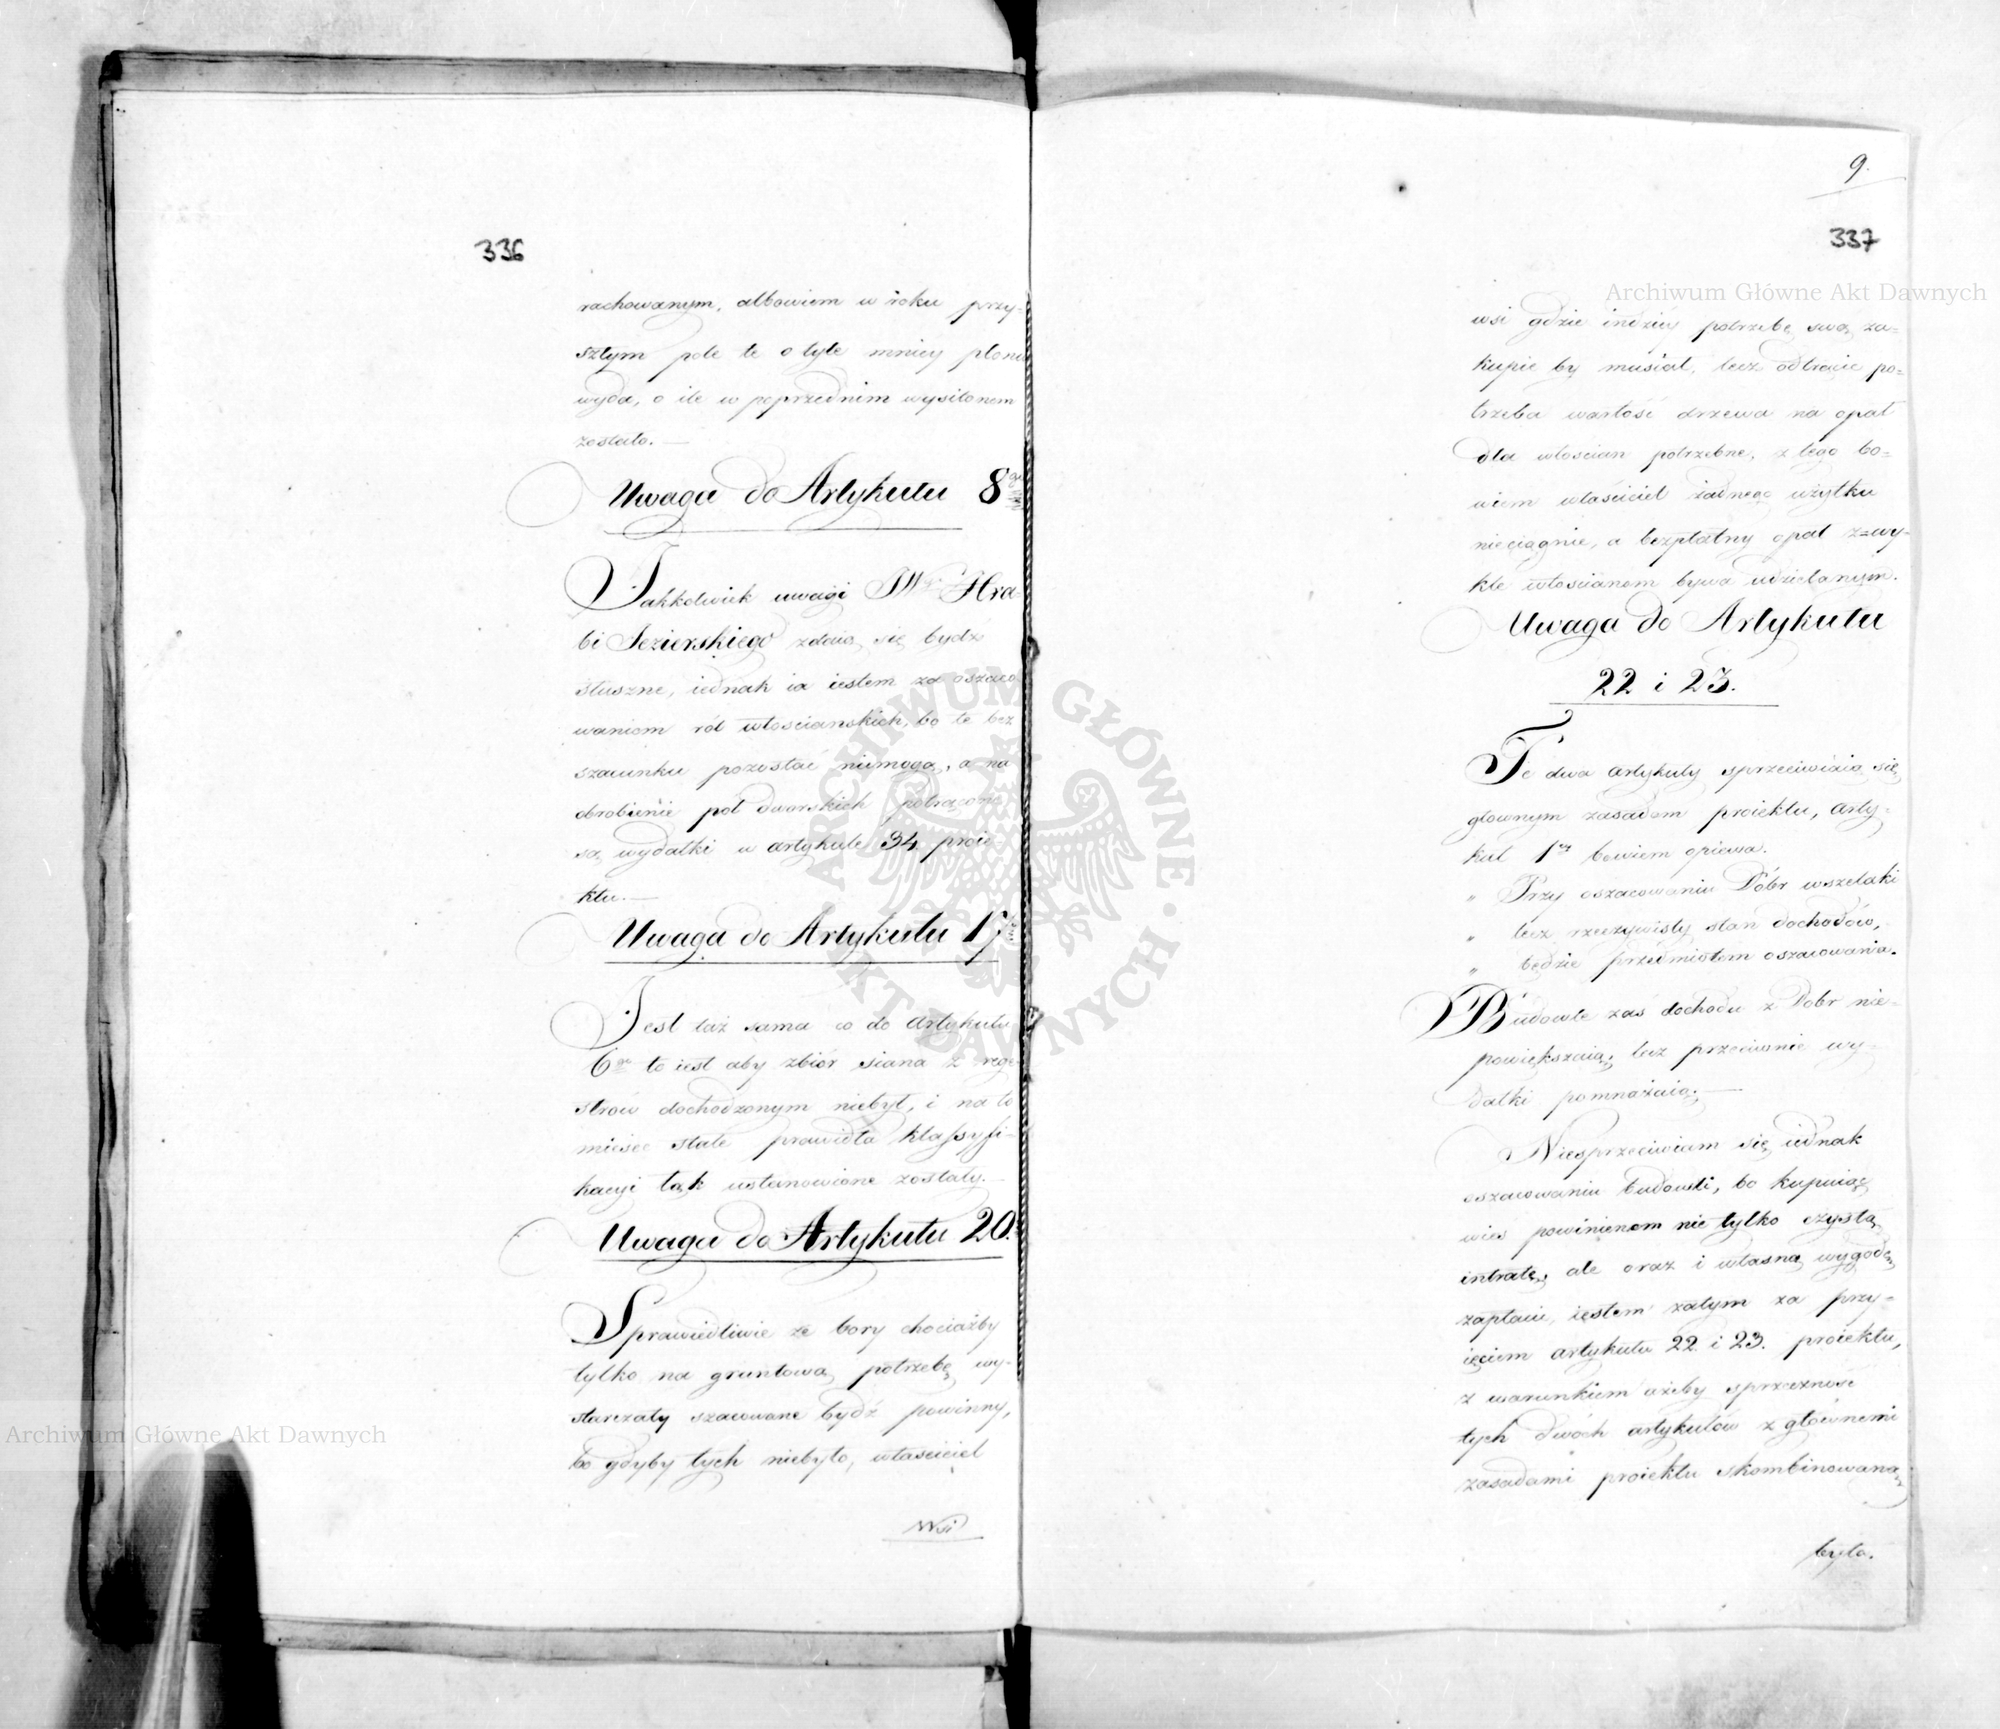 336
rachowanym, albowiem w roku przy-
szłym pole te o tyle mniey plonu
wyda, o ile w poprzednim wysilonem
zostało. —
Uwaga do Artykułu 8go
Jakkolwiek uwagi JWo Hra-
bi Jezierskiego zdaią się bydź
słuszne, iednak ia iestem za oszaco
waniem ról włosciańskich, bo te bez
szacunku pozostać niemogą, a na
obrobienie pól dworskich potrącone
są wydatki w artykule 34 proie
ktu. —
Uwaga do Artykułu 17
Jest taż sama co do Artykułu
6go to iest aby zbiór siana z rege
strów dochodzonym niebył, i na to
mieisce stałe prawidła klassyfi-
kacyi tak ustanowione zostały. —
Uwaga do Artykułu 20.
Sprawiedliwie że bory chociażby
tylko na gruntową potrzebę wy-
starczały szacowane bydź powinny,
bo gdyby tych niebyło, właściciel
Wsi
9.
337
wsi gdzie indziey potrzebę swą za-
kupić by musiał, lecz odtrącić po-
trzeba wartość drzewa na opał
dla włościan potrzebne, z tego bo-
wiem właściciel żadnego użytku
nieciągnie, a bezpłatny opał zwy-
kle włościanom bywa udzielanym.
Uwaga do Artykułu
22 i 23.
Te dwa artykuły sprzeciwiaią się
głownym zasadom proiektu, arty-
kuł 1szy bowiem opiewa.
„ Przy oszacowaniu Dóbr wszelaki
„ lecz rzeczywisty stan dochodów,
„ będzie przedmiotem oszacowania.
Budowle zaś dochodu z Dobr nie-
powiększaią, lecz przeciwnie wy-
datki pomnażaią. —
Niesprzeciwiam się iednak
oszacowaniu budowli, bo kupuiąc
wieś powinienem nie tylko czystą
intratę, ale oraz i własną wygodę
zapłacić, iestem zatym za przy-
ięciem artykułu 22 i 23. proiektu,
z warunkiem ażeby sprzeczność
tych dwóch artykułów z głównemi
zasadami proiektu skombinowaną
była.
Archiwum Główne Akt Dawnych
Archiwum Główne Akt Dawnych
ARCHIWUM GŁÓWNE AKT DAWNYCH